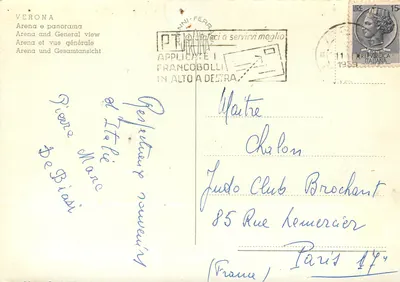 VERONA
Arena e panorama
Arena and General view
Arena et vue générale
Arena und Gesamtansicht
PT
a servirvi meglio
APPLICATE I
FRANCOBOLLI
IN ALTO A DESTRA
15
Respectueux souvenirs
d'Italie
Pierre Marc
De Biasi
Maître
Chalon
Judo Club Brochant
85 Rue Lemercier
Paris 17e
(France)